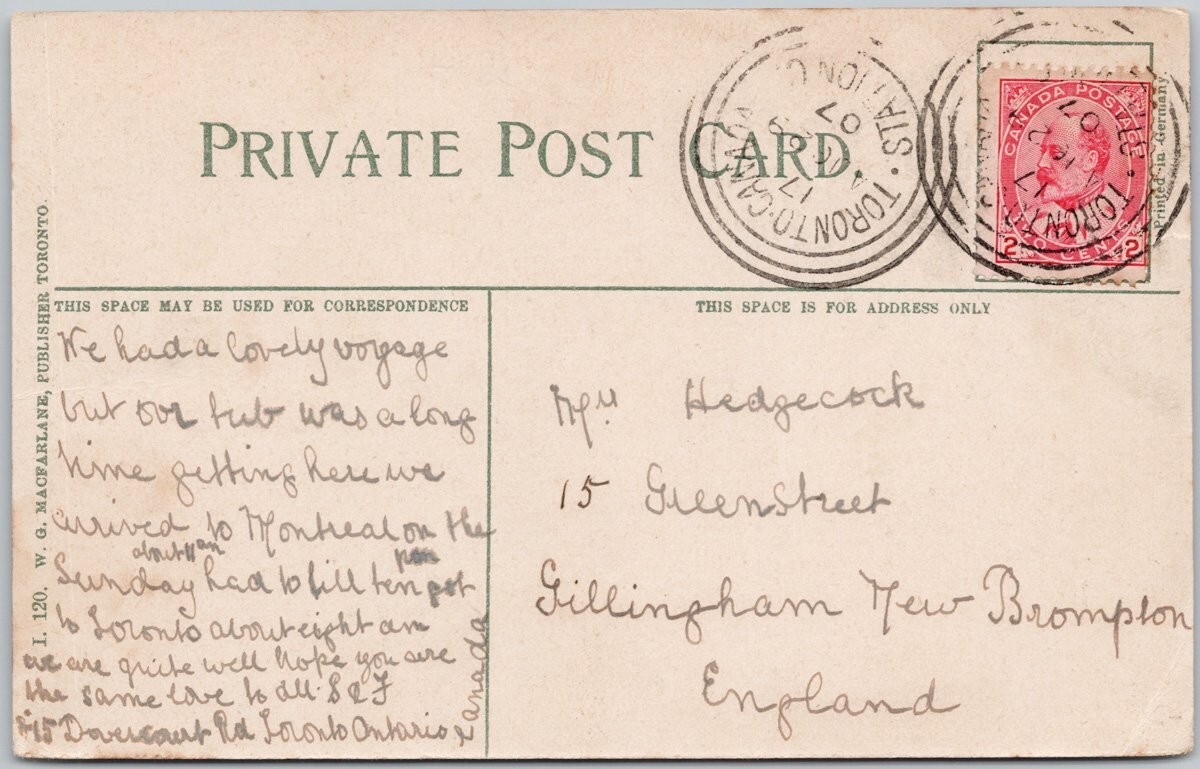 PRIVATE POST CARD
CANADA POSTAGE
2 TWO CENTS 2
TORONTO·CANADA
STATION C
17
AU 29
07
Printed in Germany
I. 120. W. G. MACFARLANE, PUBLISHER TORONTO.
THIS SPACE MAY BE USED FOR CORRESPONDENCE
THIS SPACE IS FOR ADDRESS ONLY
We had a lovely voyage
but our tub was a long
time getting here we
arrived to Montreal on the
about 11 am
Sunday had to till ten
pm
to Toronto about eight am
we are quite well hope you are
the same love to all. S & F
15 Dovercourt Rd Toronto Ontario
Canada
Mrs Hedgecock
15 Green Street
Gillingham New Brompton
England